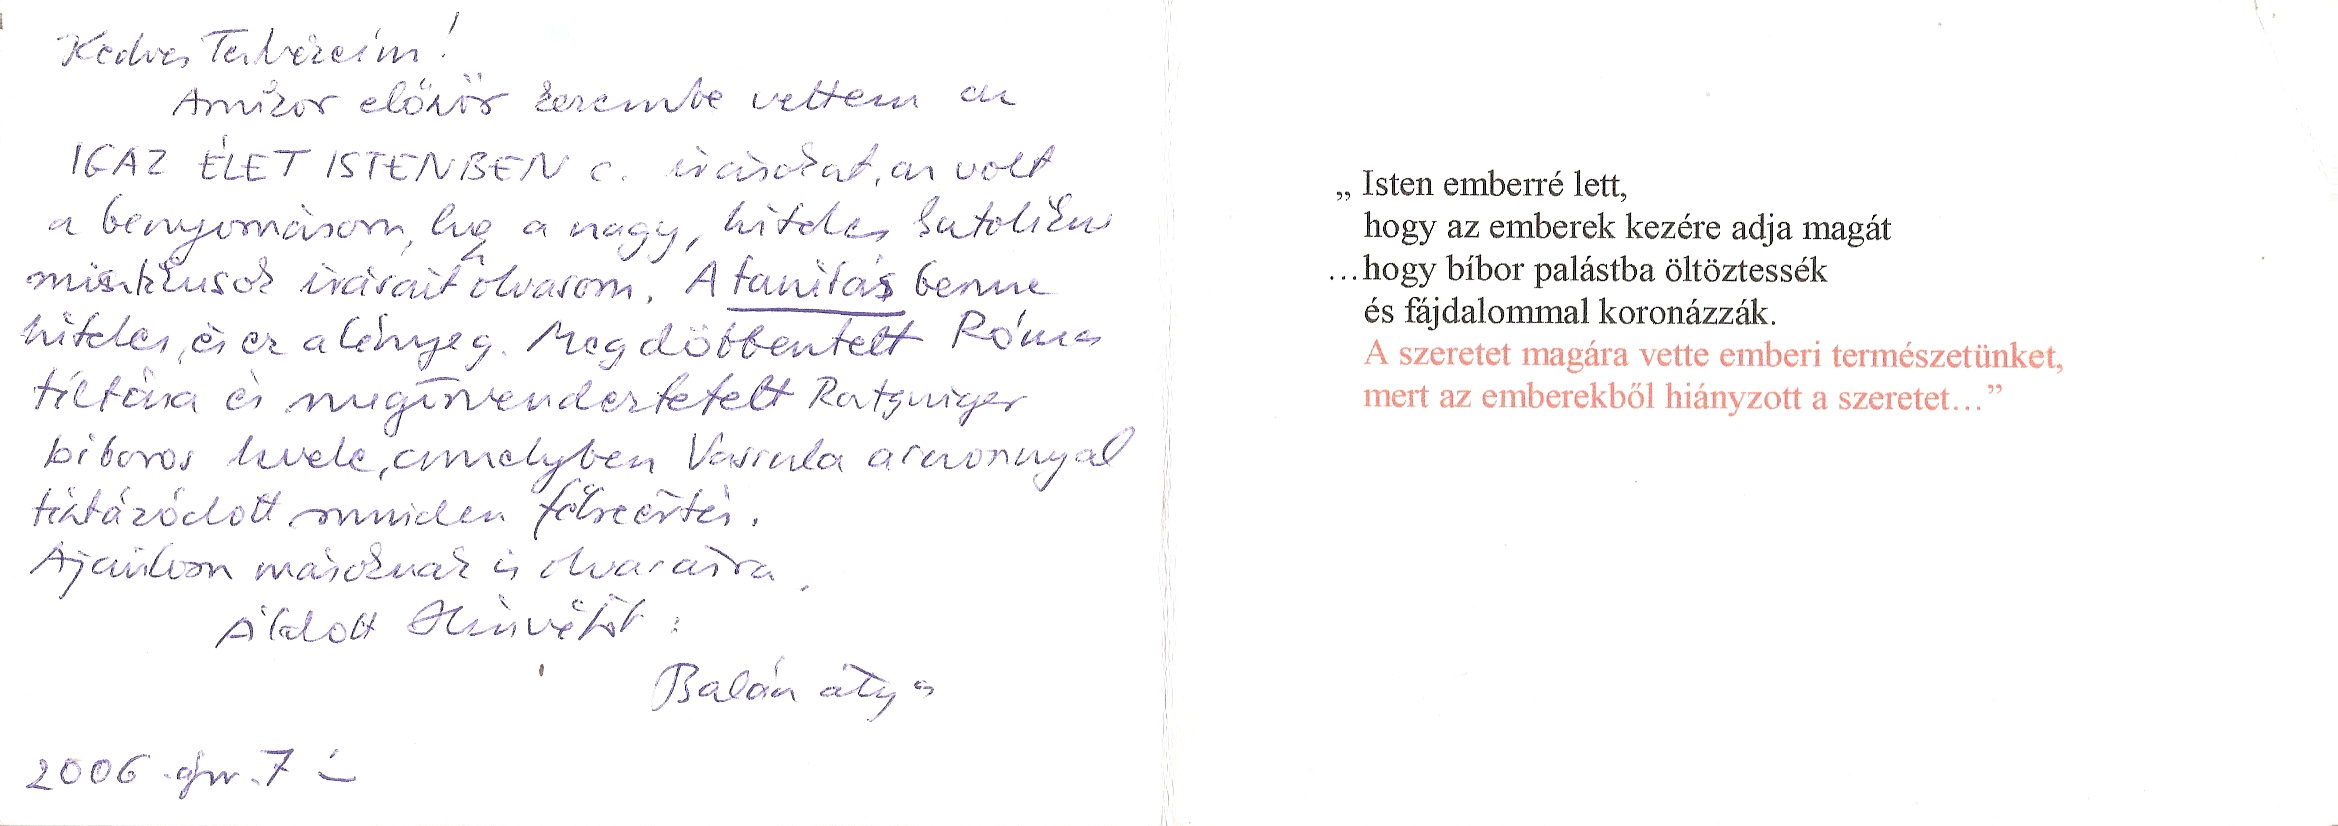 Kedves Testvéreim!
Amikor először kezembe vettem az
IGAZ ÉLET ISTENBEN c. írásokat, az volt
a benyomásom, hog a nagy, hiteles katolikus
misztikusok írásait olvasom. A tanítás benne
hiteles, és ez a lényeg. Megdöbbentett Róma
tiltása és megörvendeztetett Ratzinger
bíboros levele, amelyben Vassula asszonnyal
tisztázódott minden félreértés.
Ajánlom másoknak is olvasásra.
Áldott Húsvétot:
Balázs atya
2006. ápr. 7
„ Isten emberré lett,
hogy az emberek kezére adja magát
…hogy bíbor palástba öltöztessék
és fájdalommal koronázzák.
A szeretet magára vette emberi természetünket,
mert az emberekből hiányzott a szeretet…”